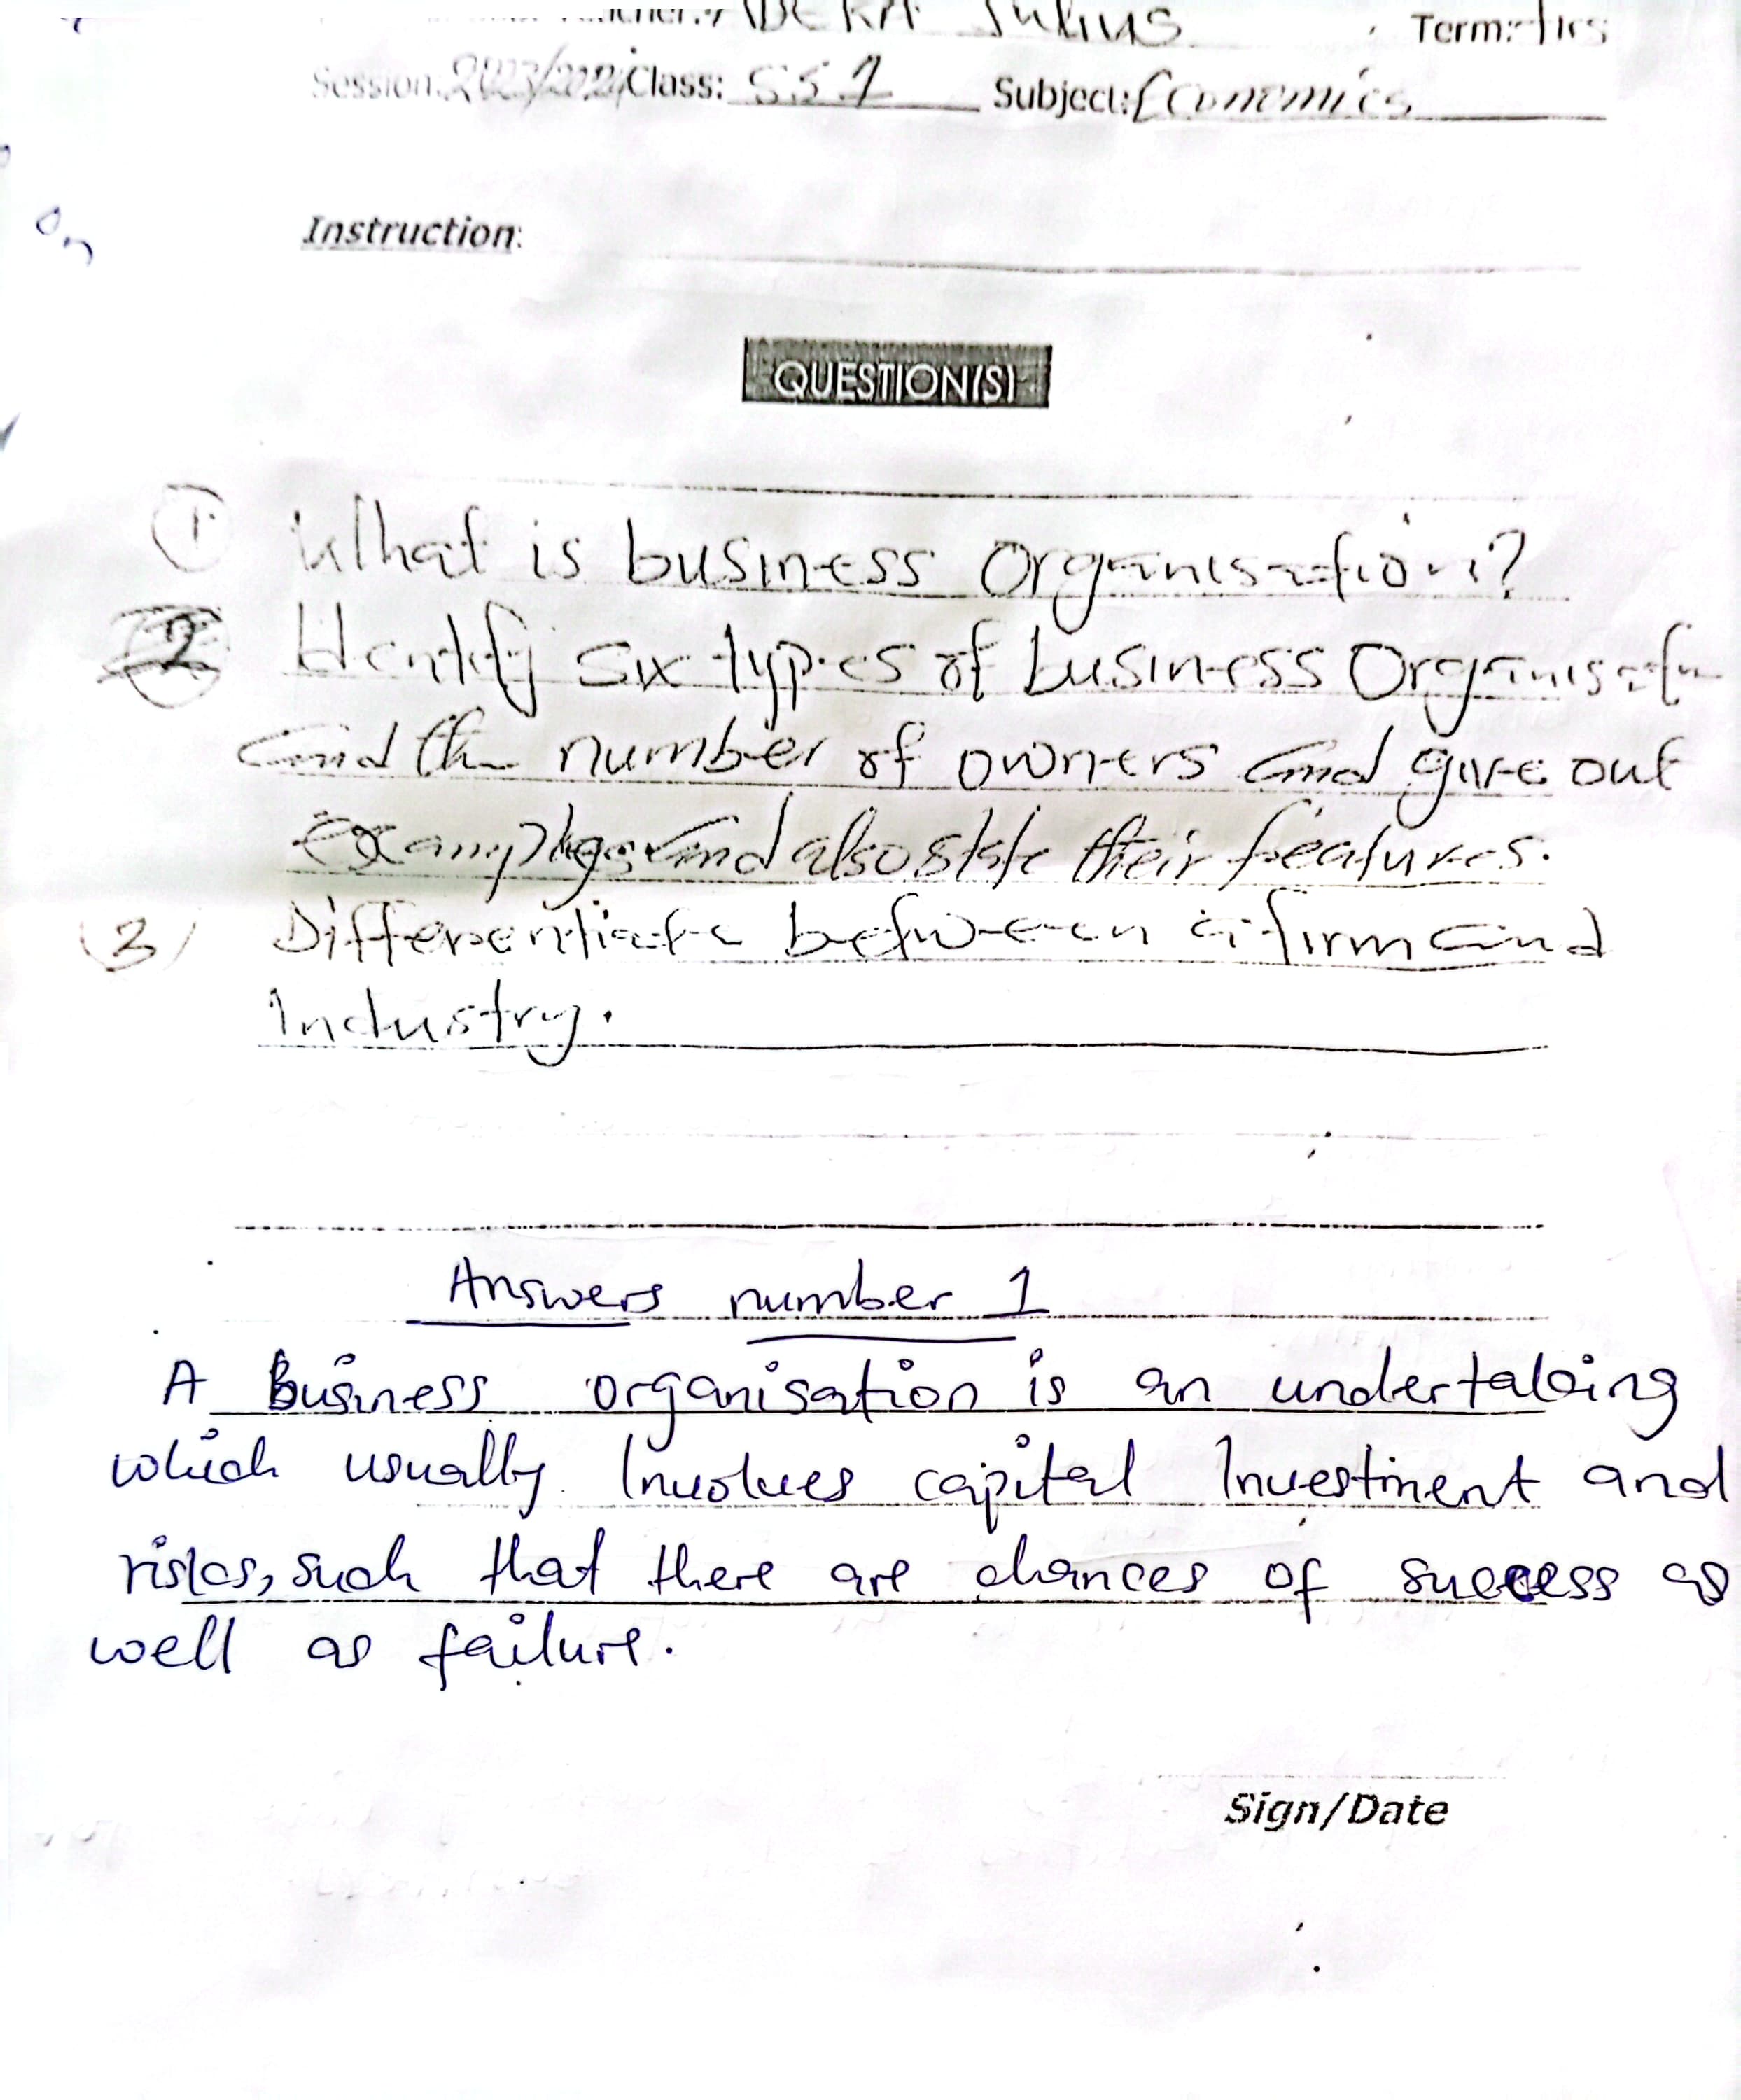 Julius Term:
Session: 2023/2024 Class: SS 1 Subject: Economics
Instruction:
QUESTION(S)
1 What is business Organisation?
2 Identify six types of business Organisation
and the number of owners and give out
examples and also state their features.
(3) Differentiate between a firm and
Industry.
Answers number 1
A Business organisation is an undertaking
which usually Involves capital Investment and
risks, such that there are chances of success as
well as failure.
Sign/Date